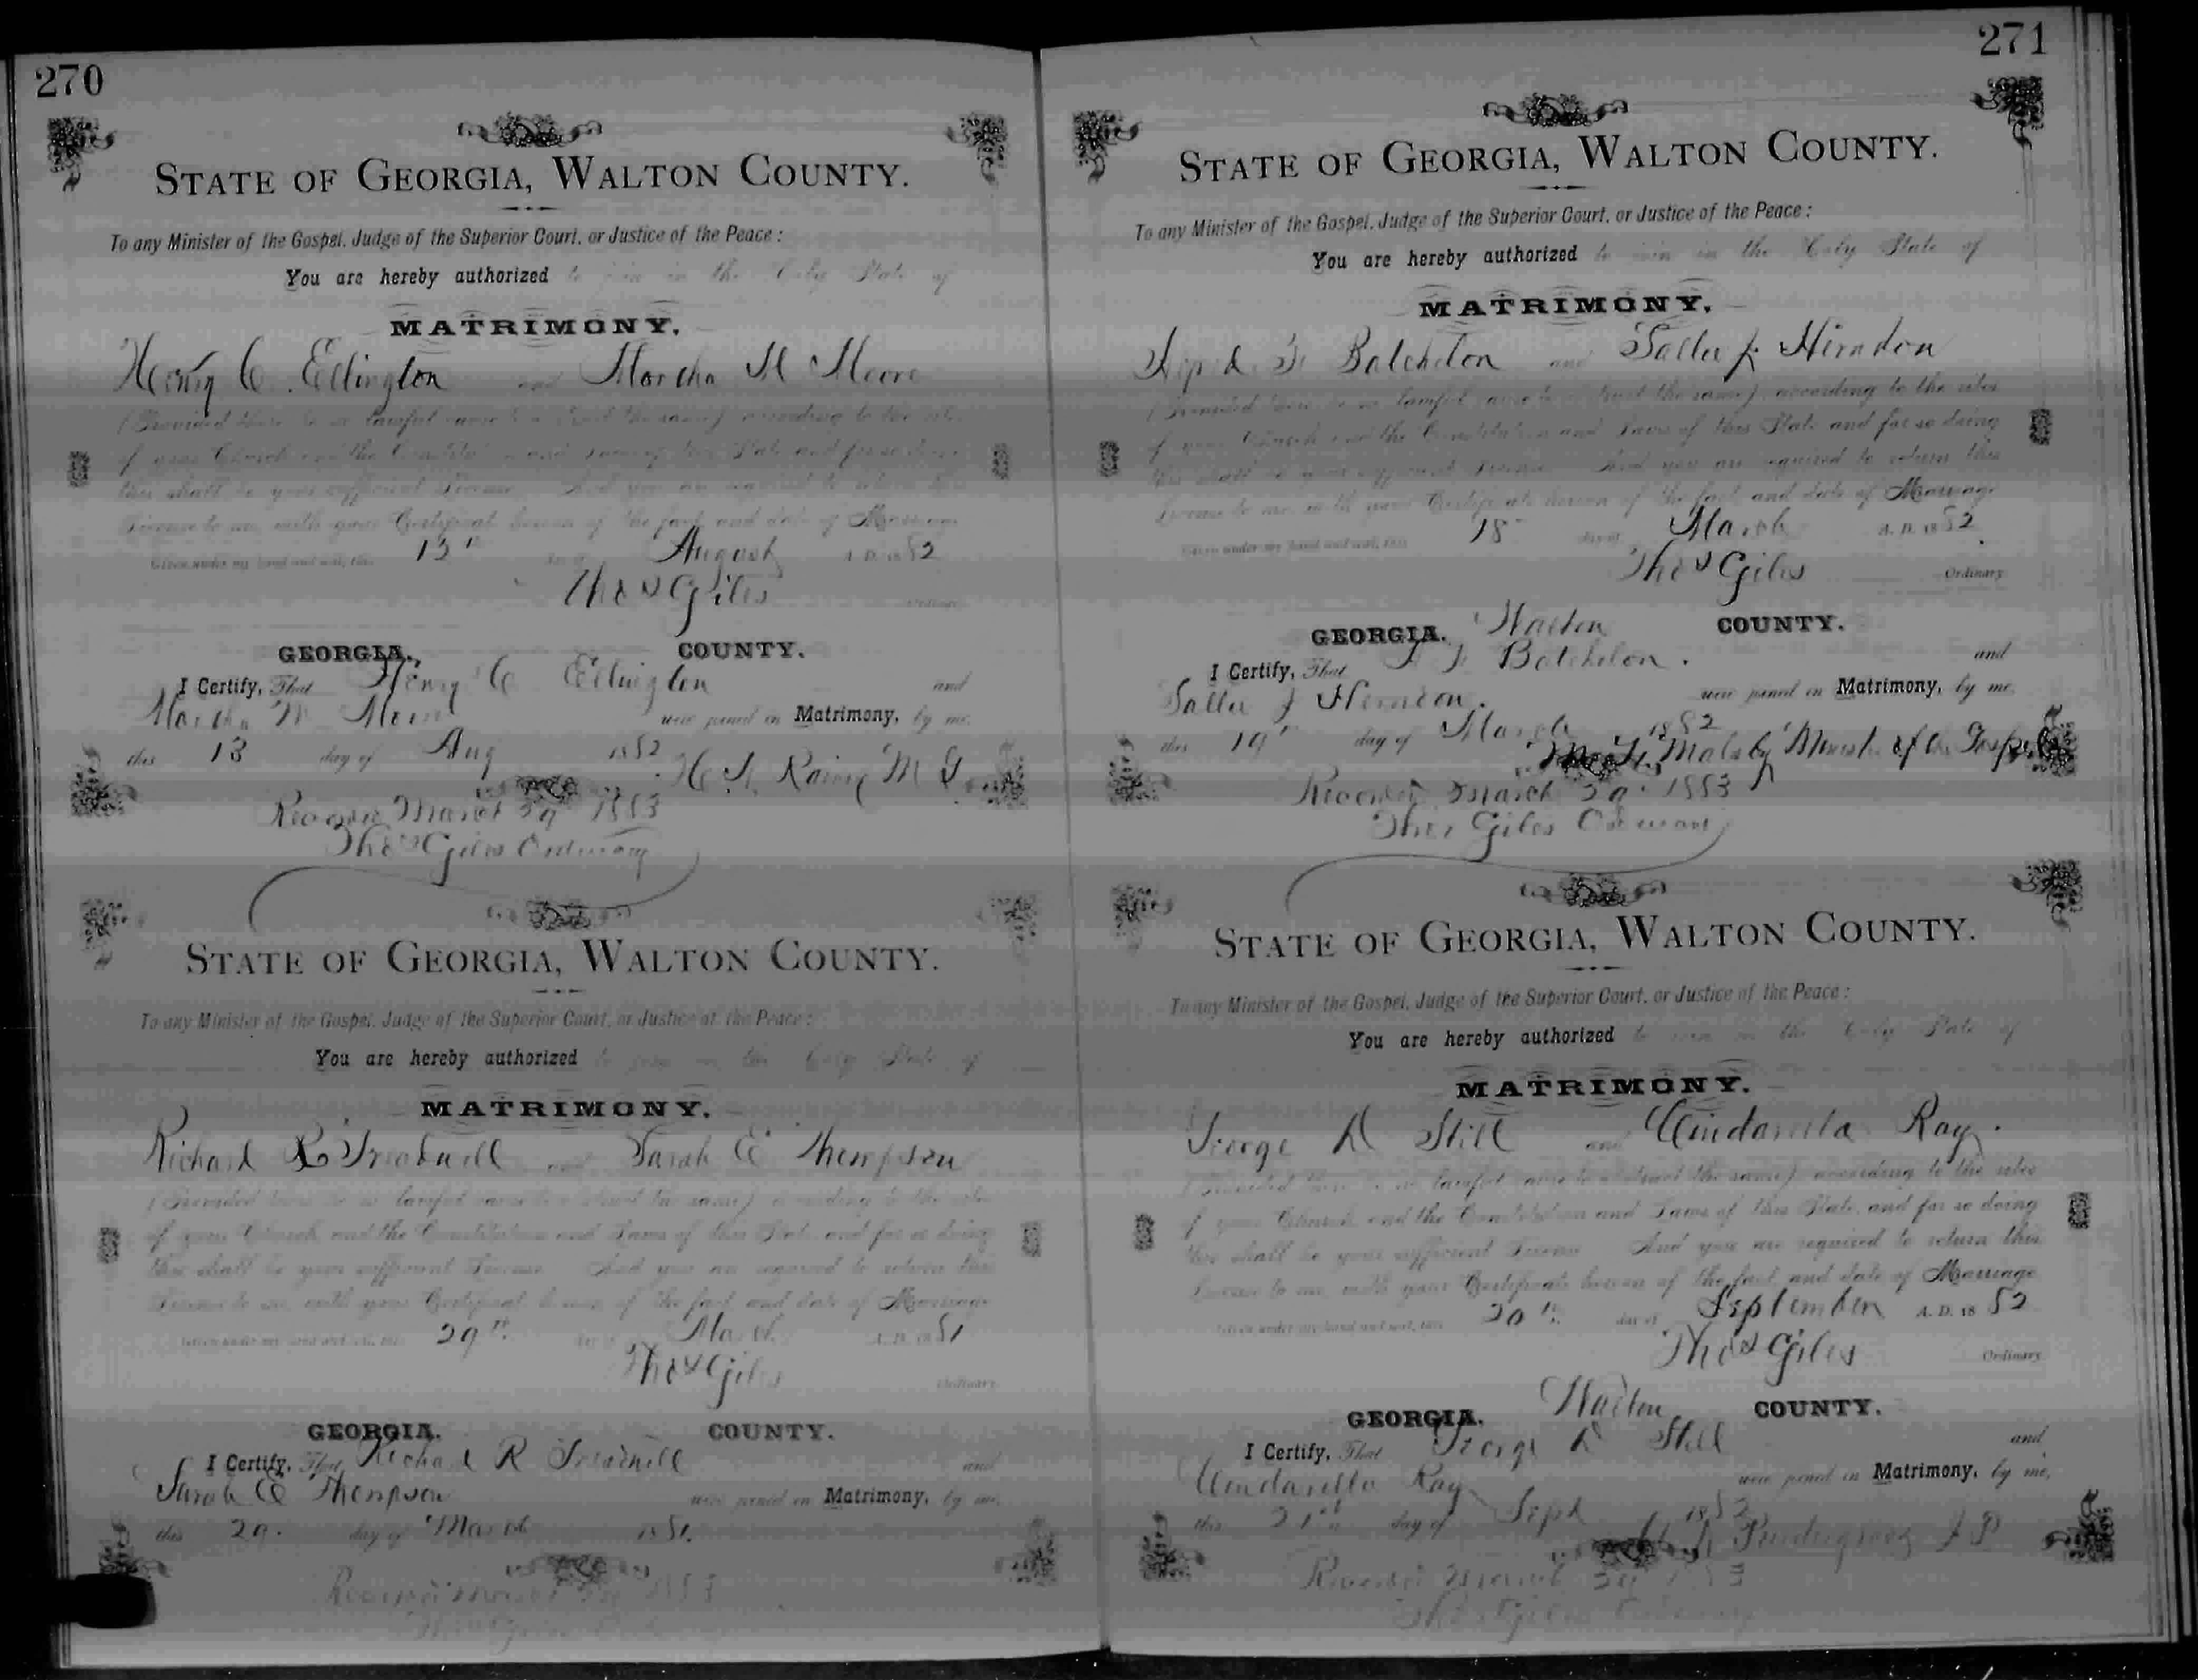 270
STATE OF GEORGIA, WALTON COUNTY.
To any Minister of the Gospel, Judge of the Superior Court, or Justice of the Peace:
You are hereby authorized to join in the Holy State of
MATRIMONY,
Henry C. Ellington and Martha M Moore
(Provided there be no lawful cause to obstruct the same) according to the rites
of your Church and the Constitution and Laws of this State and for so doing
this shall be your sufficient License And you are required to return this
License to me with your Certificate hereon of the fact and date of Marriage
Given under my hand and seal, this 13th day of August A. D. 1882
Thos Giles Ordinary
GEORGIA, COUNTY.
I Certify, That Henry C Ellington and
Martha M Moore were joined in Matrimony, by me,
this 13 day of Aug 1882
M G
March 29 1883
Thos Giles Ordinary
STATE OF GEORGIA, WALTON COUNTY.
To any Minister of the Gospel, Judge of the Superior Court, or Justice of the Peace:
You are hereby authorized to join in the Holy State of
MATRIMONY,
Richard R and Sarah E Thompson
(Provided there be no lawful cause to obstruct the same) according to the rites
of your Church and the Constitution and Laws of this State and for so doing
this shall be your sufficient License And you are required to return this
License to me with your Certificate hereon of the fact and date of Marriage
Given under my hand and seal, this 29th day of March A. D. 1881
Thos Giles Ordinary
GEORGIA, COUNTY.
I Certify, That Richard R and
Sarah E Thompson were joined in Matrimony, by me,
this 29. day of March 1881.
March 1883
Thos Giles
271
STATE OF GEORGIA, WALTON COUNTY.
To any Minister of the Gospel, Judge of the Superior Court, or Justice of the Peace:
You are hereby authorized to join in the Holy State of
MATRIMONY,
Batchelor and Sallie J. Herndon
(Provided there be no lawful cause to obstruct the same) according to the rites
of your Church and the Constitution and Laws of this State and for so doing
this shall be your sufficient License And you are required to return this
License to me with your Certificate hereon of the fact and date of Marriage
Given under my hand and seal, this 18 day of March A. D. 1882.
Thos Giles Ordinary
GEORGIA, Walton COUNTY.
I Certify, That Batchelor. and
Sallie J Herndon. were joined in Matrimony, by me,
this 19th day of March 1882
Malsby Minister of the Gospel
Recorded March 29. 1883
Thos Giles Ordinary
STATE OF GEORGIA, WALTON COUNTY.
To any Minister of the Gospel, Judge of the Superior Court, or Justice of the Peace:
You are hereby authorized to join in the Holy State of
MATRIMONY.
George D Still and Cindarilla Ray.
(Provided there be no lawful cause to obstruct the same) according to the rites
of your Church and the Constitution and Laws of this State and for so doing
this shall be your sufficient License And you are required to return this
License to me with your Certificate hereon of the fact and date of Marriage
Given under my hand and seal, this 20th day of September A. D. 1882
Thos Giles Ordinary
GEORGIA, Walton COUNTY.
I Certify, That George D Still and
Cindarilla Ray were joined in Matrimony, by me,
this 21st day of Sept 1882
J P
Recorded March 29 1883
Thos Giles Ordinary